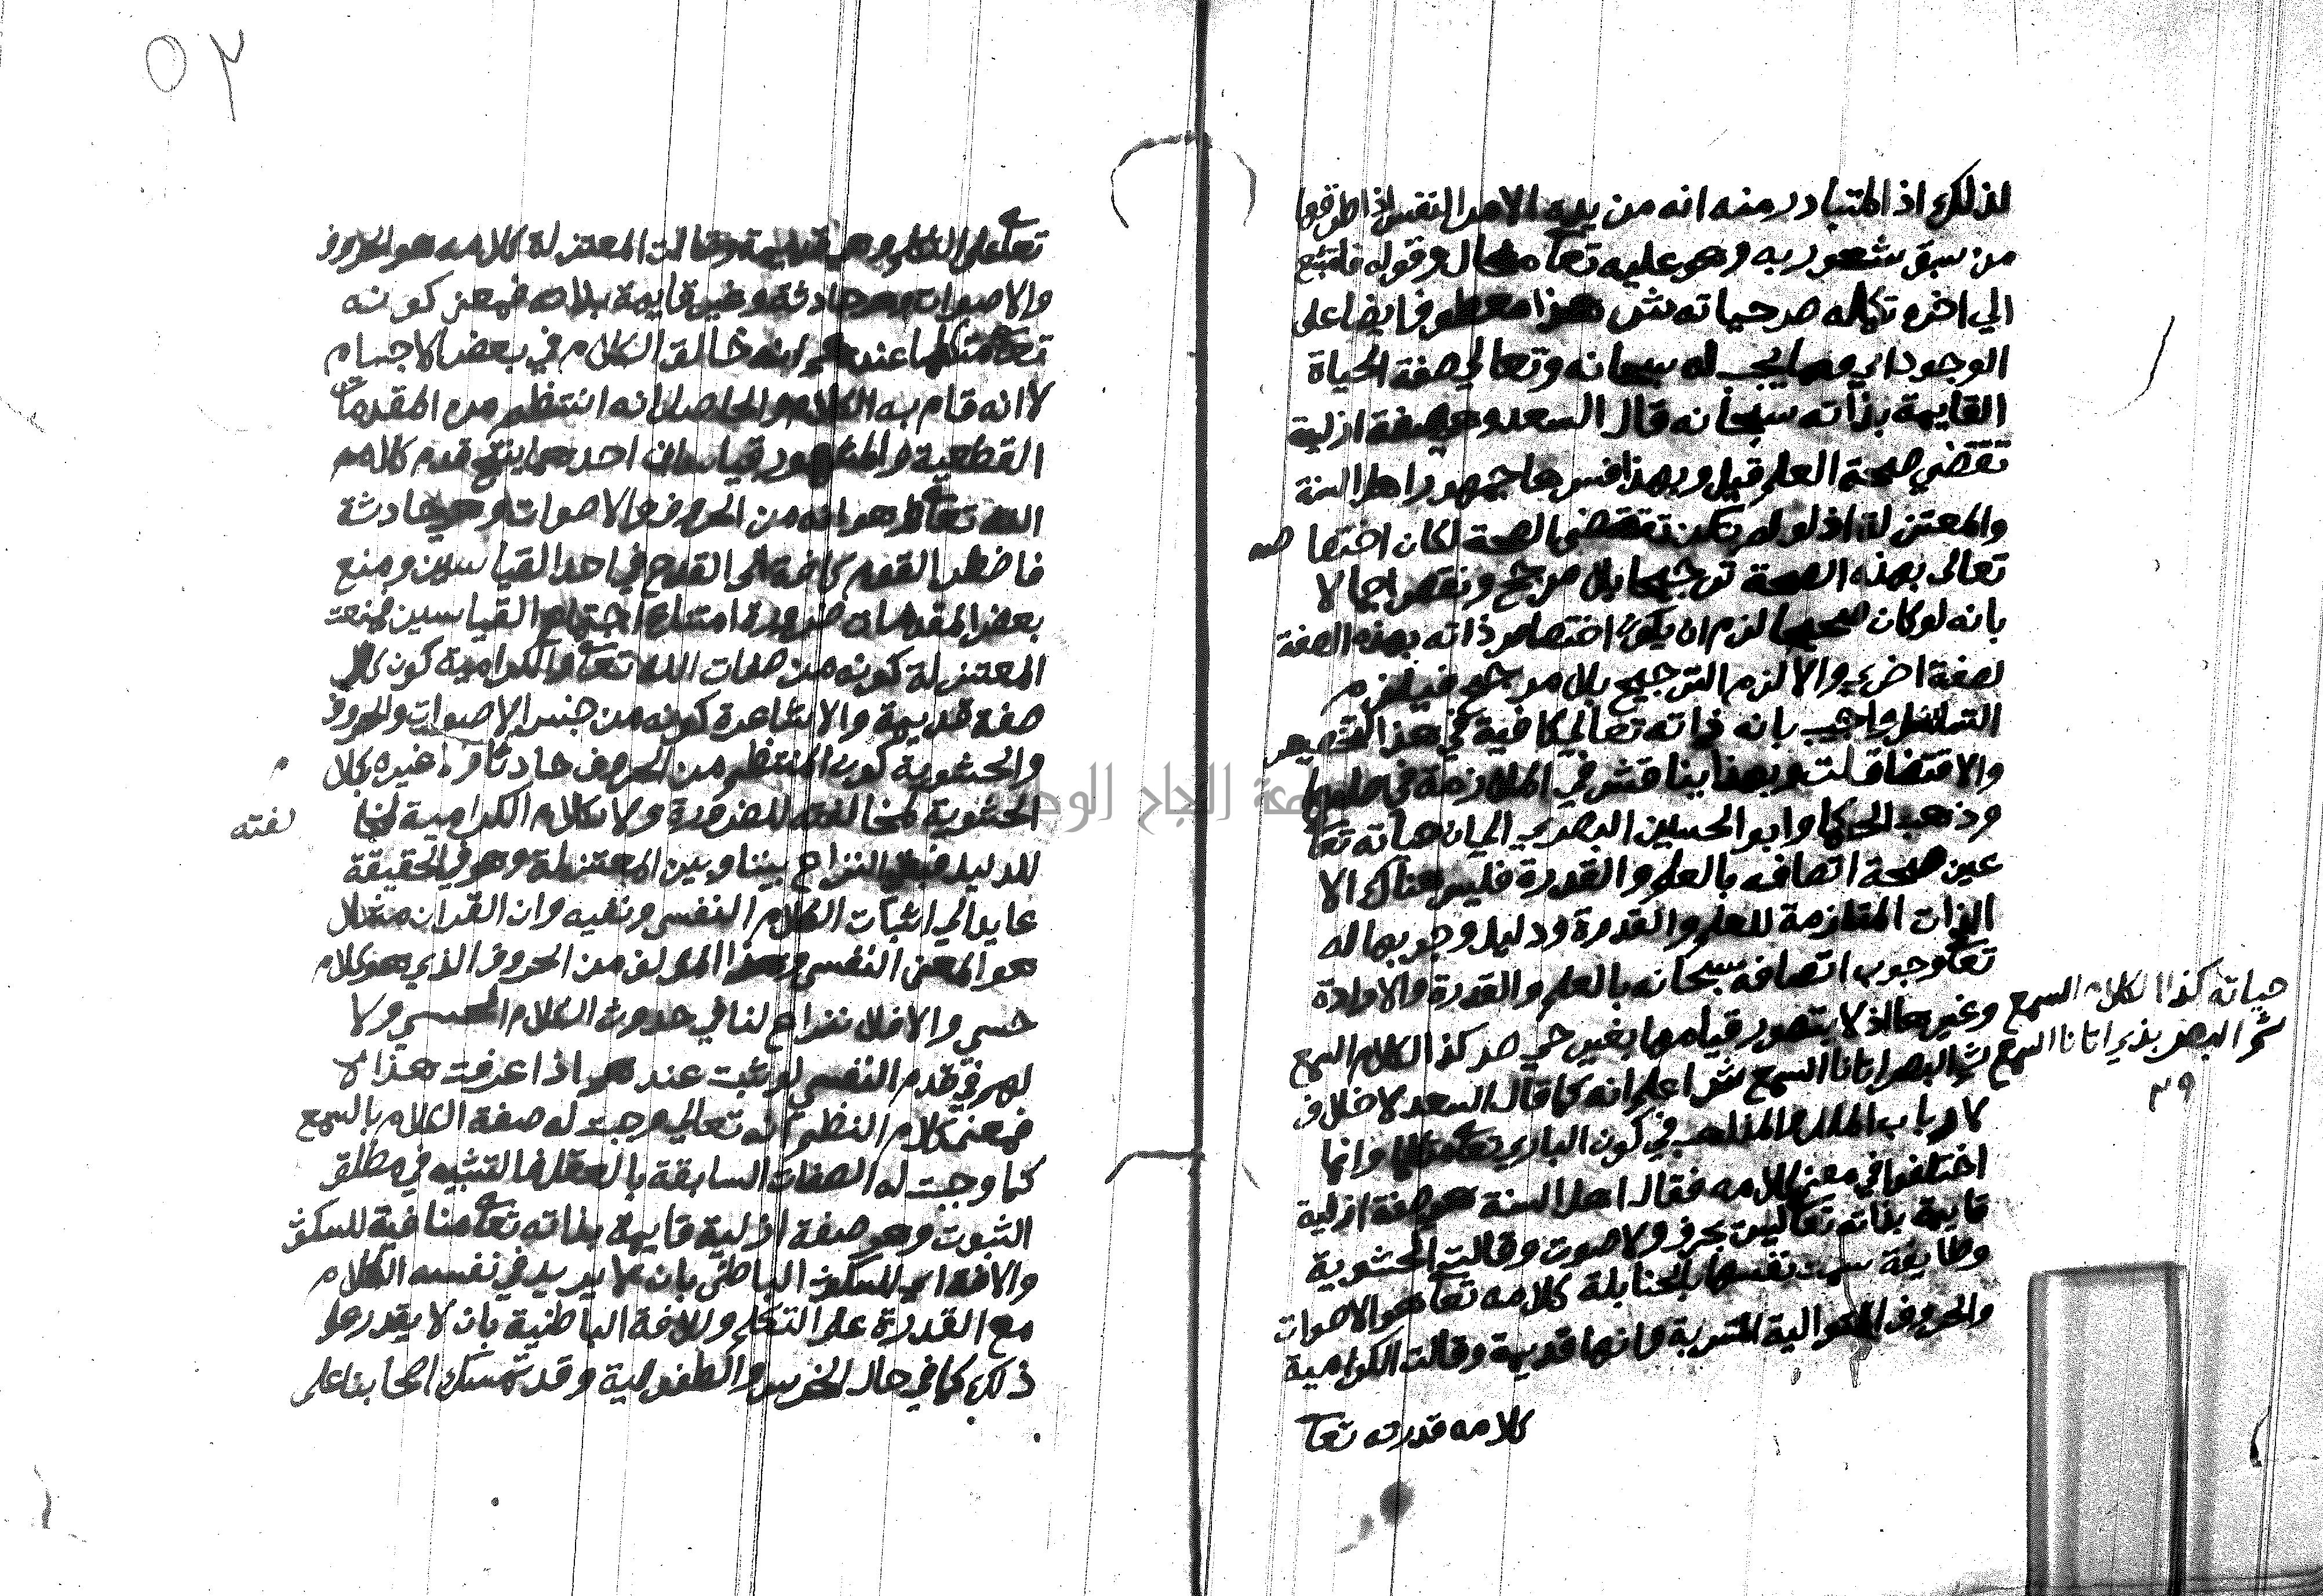 لذلك اذ المتبادر منه انه من بده الامر النفس اذا طرقها
من سبق شعور به وهو عليه تعا محال وقوله فلتتبع
الي اخره تكمله ص حياته ش هذا معطوف ايضا على
الوجود اي ومما يجب له سبحانه وتعالي صفة الحياة
القايمة بذاته سبحانه قال السعد وهي صفة ازلية
تقتضي صحة العلم قيل وبهذا فسرها جمهور اهل السنة
والمعتزلة اذ لو لم تكن تقتضى الصحة لكان اختصا صه
تعالى بهذه الصحة ترجيحا بلا مرجح ونقض اجمالا
بانه لو كان صحيحا لزم ان يكون اختصاص ذاته بهذه الصفة
لصفة اخرى والا لزم الترجيح بلا مرجح فيلزم
التسلسل واجيب بانه ذاته تعالي كافية في هذا التخصيص
والاقتضا قلت وبهذا يناقش في الملازمة في
وذهب الحكما وابو الحسين البصري الي ان حياته تعا
عين صحة اتصافه بالعلم والقدرة فليس هناك الا
الذات المقتازمة للعلم والقدرة ودليل وجوبها له
تعا وجوب اتصافه سبحانه بالعلم والقدرة والارادة
وغيرها اذ لا يتصور قيامها بغير حي ص كذا الكلام السمع
ثم البصر اتانا السمع ش اعلم انه كما قال السعد لا خلاف
لارباب الملل والمذاهب في كون الباري تعا متكلما وانما
اختلفوا في معنى كلامه فقال اهل السنة هو صفة ازلية
قايمة بذاته تعا ليس بحرف ولا صوت وقالت الحشوية
وطايفة سمت نفسها بالحنابلة كلامه تعا هو الاصوات
والحروف المتوالية المترتبة وانها قديمة وقالت الكرامية
كلامه قدرته تعا
حياته كذا الكلام السمع
ثم البصر بذي اتانا السمع
٣٩
٥٢
تعا على التكلم وهي قديمة وقالت المعتزلة كلامه هو الحروف
والاصوات وهو حادثة وغير قايمة بذاته فمعنى كونه
تعا متكلما عندهم انه خالق الكلام في بعض الاجسام
لا انه قام به الكلام والحاصل انه انتظم من المقدمات
القطعية والمشهور قياسان احدهما ينتج قدم كلام
الله تعا وهو انه من الحروف والاصوات وهي حادثة
فاضطر القوم كافة الى القدح في احد القياسين ومنع
بعض المقدمات ضرورة امتناع اجتماع القياسين فمنعت
المعتزلة كونه من صفات الله تعا والكرامية كون كل
صفة قديمة والاشاعرة كونه من جنس الاصوات والحروف
والحشوية كون المنتظم من الحروف حادثا ولا عبره بكلام
الحشوية لمخالفته للضرورة ولا بكلام الكرامية لمخا لفته
للدليل فبقي النزاع بيننا وبين المعتزلة وهو في الحقيقة
عايد الي اثبات الكلام النفسي ونفيه وان القران
هو المعنى النفسي وهذا المولف من الحروف الذي هو كلام
حسي والا فلا نزاع لنا في حدوث الكلام الحسي ولا
لهم في قدم النفسي لو ثبت عندهم اذا عرفت هذا
فمعنى كلام النظم انه تعالي وجبت له صفة الكلام بالسمع
كما وجبت له الصفات السابقة بالعقل فالتشبيه في مطلق
الثبوت وهو صفة ازلية قايمة بذاته تعا منافية للسكوت
والافة اي للسكوت الباطني بان لا يريد في نفسه الكلام
مع القدرة على التكلم وللافة الباطنية بان لا يقدر على
ذلك كما في حال الخرس والطفولية وقد تمسك اصحابنا على